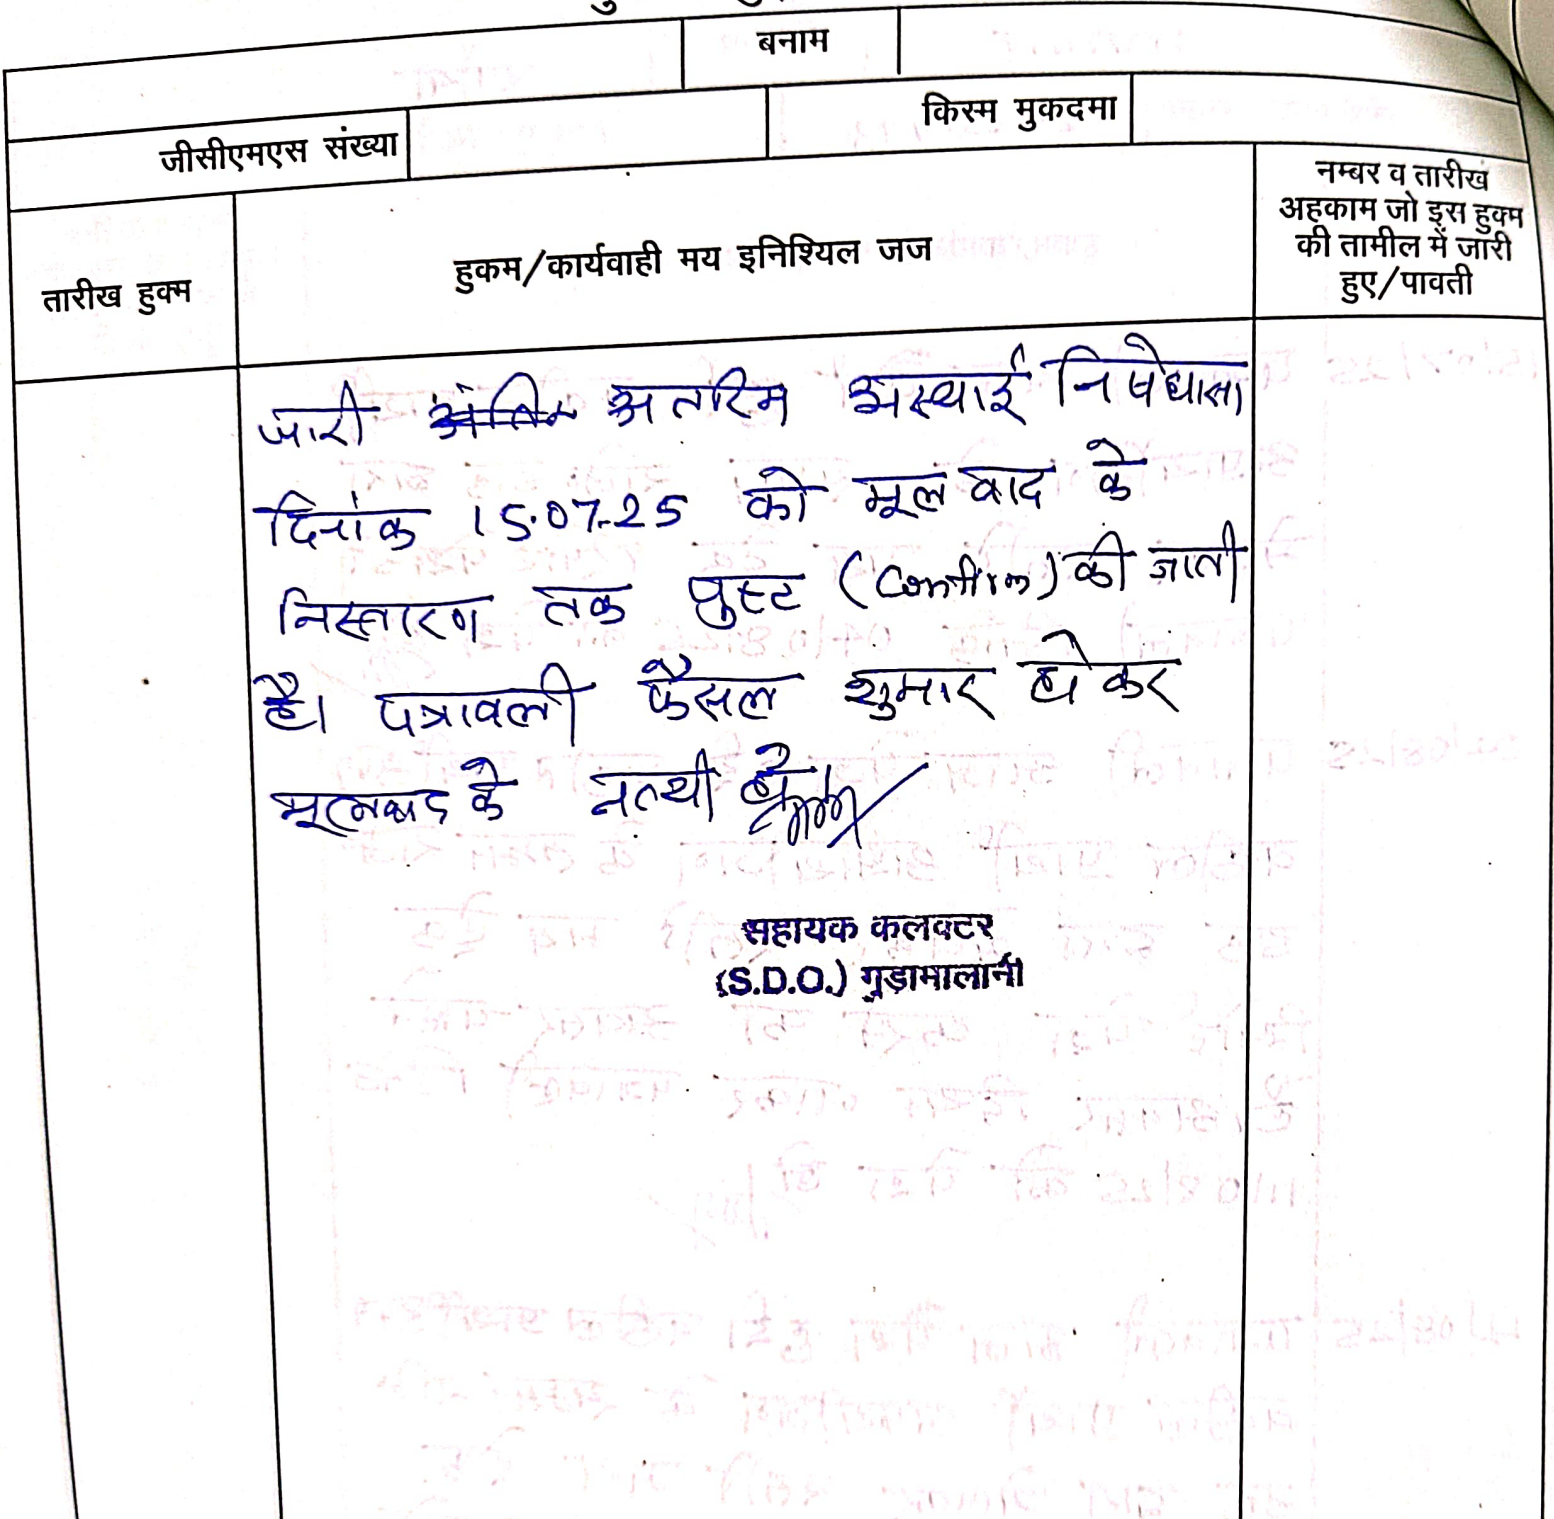 बनाम
जीसीएमएस संख्या
किस्म मुकदमा
तारीख हुक्म
हुकम/कार्यवाही मय इनिश्यिल जज
नम्बर व तारीख
अहकाम जो इस हुक्म
की तामील में जारी
हुए/पावती
जारी अंतरिम अस्थाई निषेधाज्ञा
दिनांक 15.07.25 को मूल वाद के
निस्तारण तक पुष्ट (Confirm) की जाती
है। पत्रावली फैसल शुमार होकर
मूलवाद के नत्थी हो
सहायक कलक्टर
(S.D.O.) गुड़ामालानी